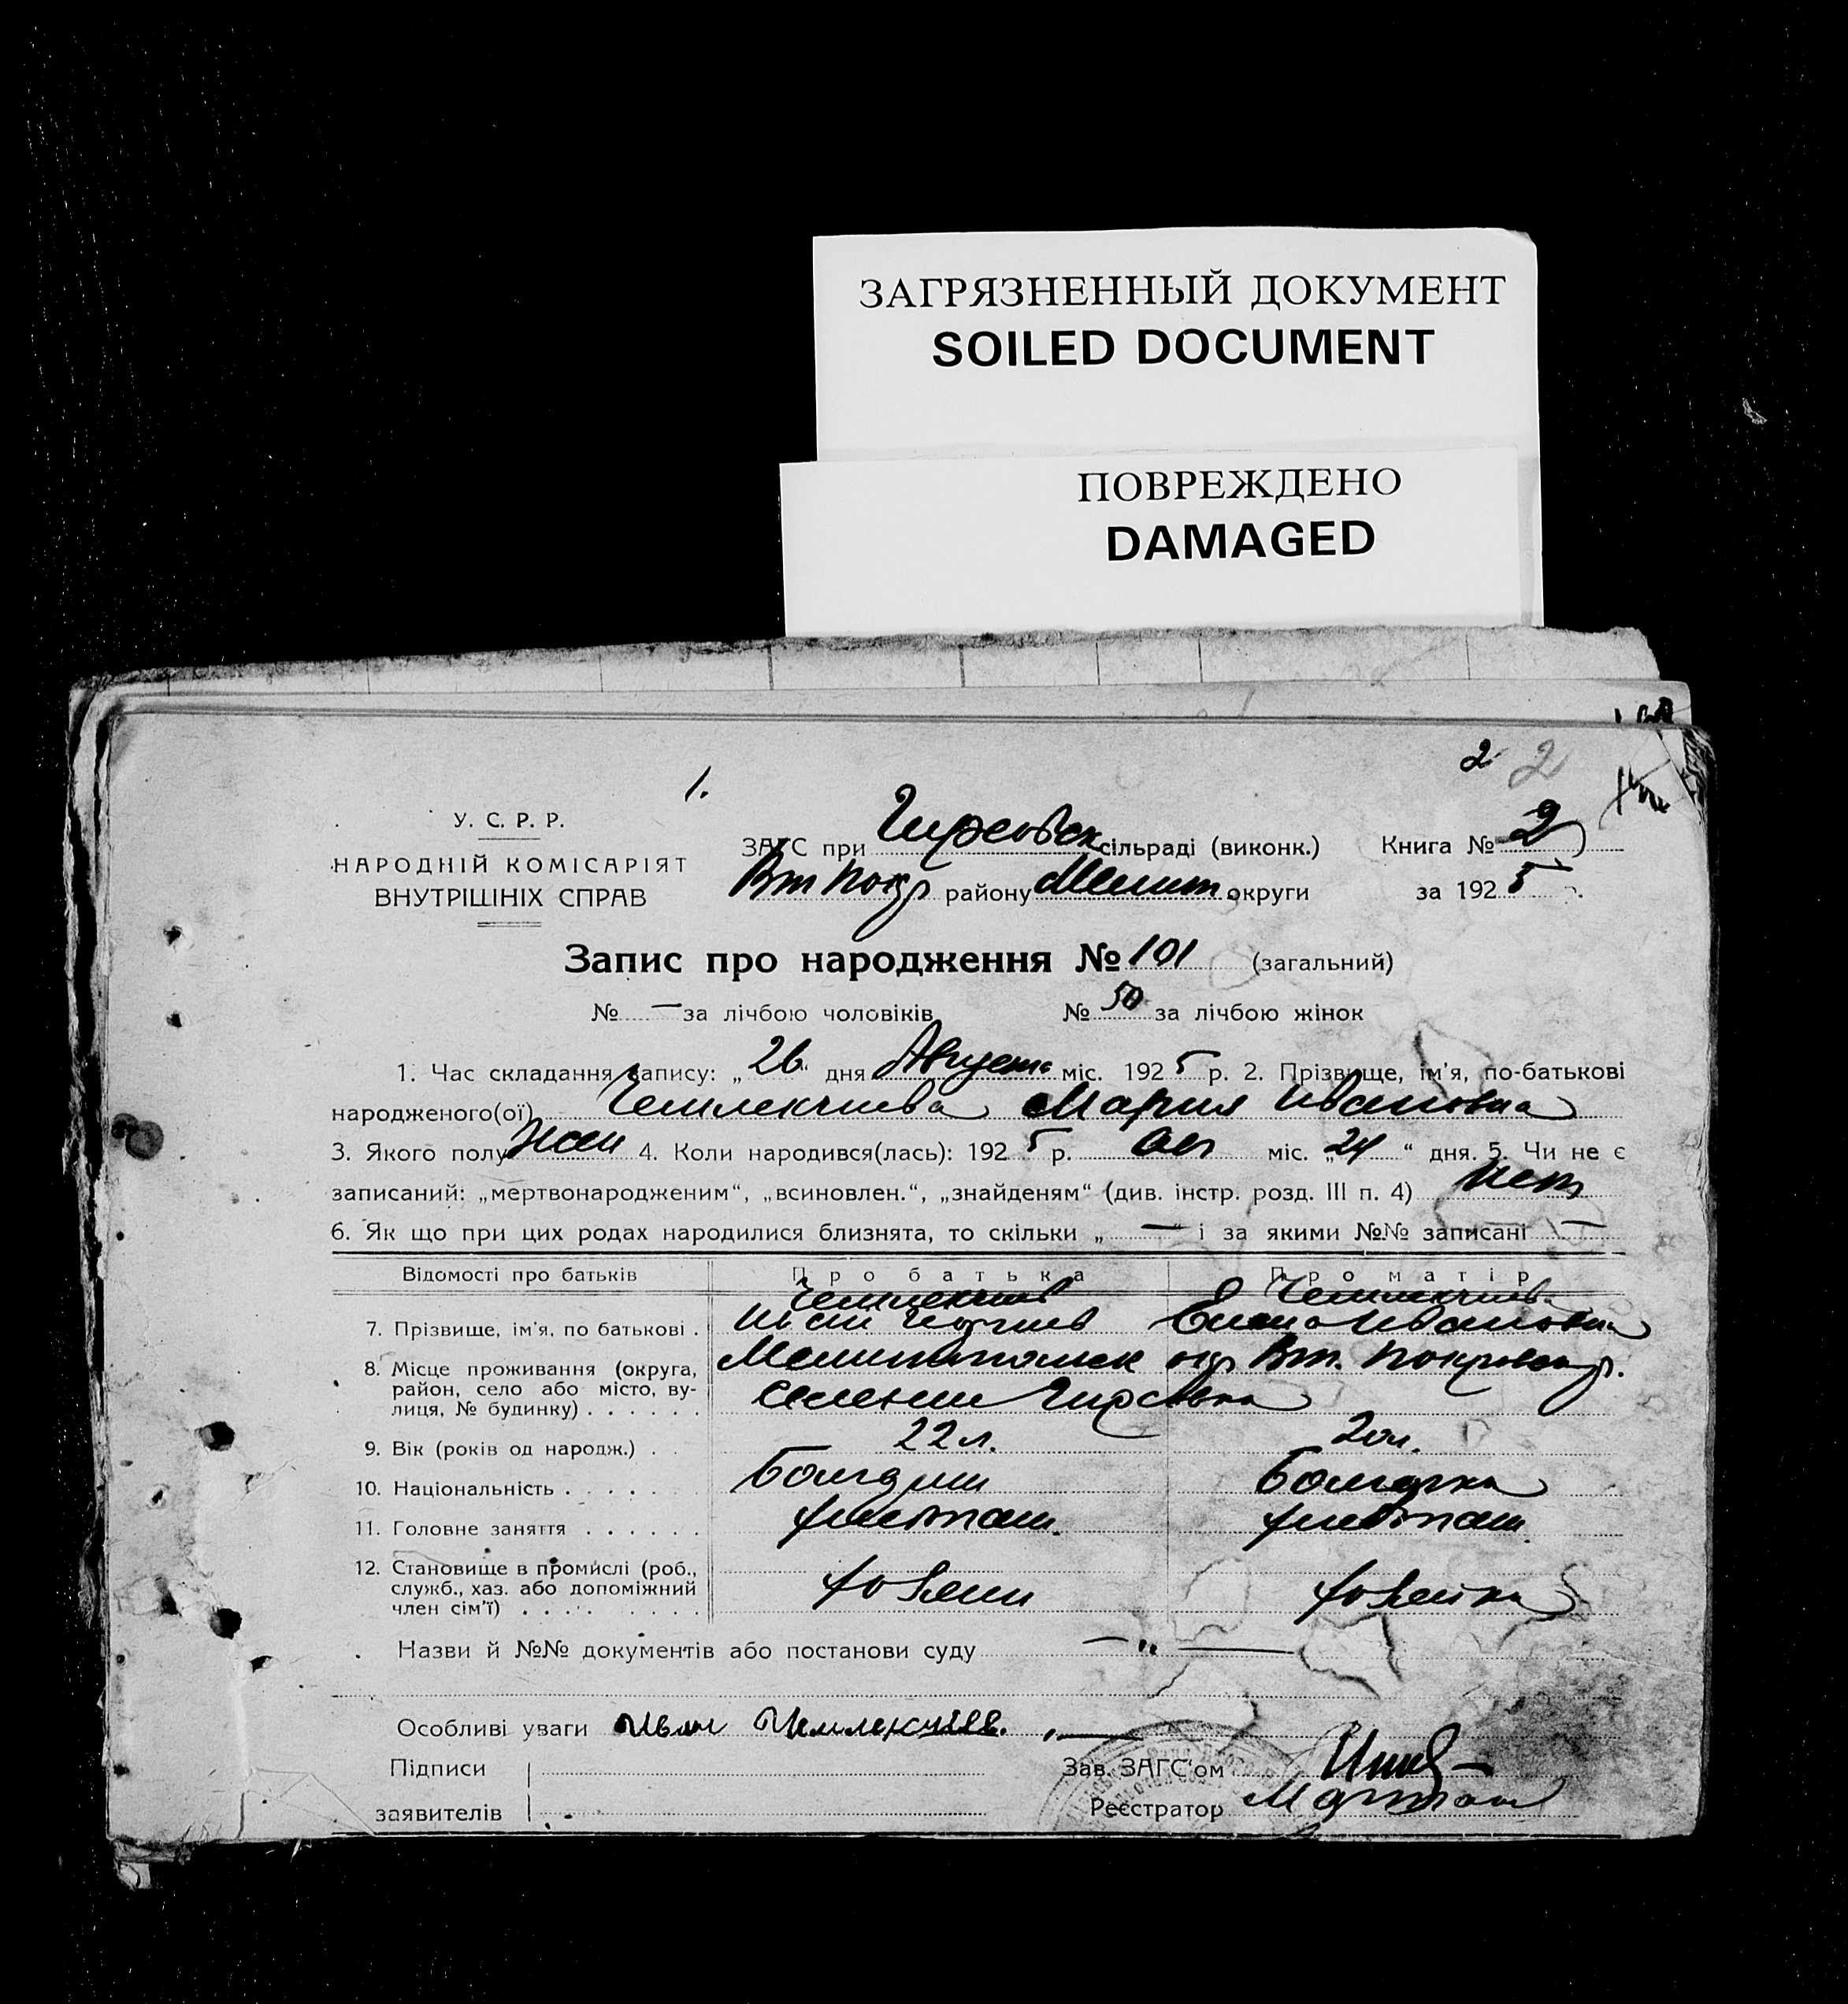 ЗАГРЯЗНЕННЫЙ ДОКУМЕНТ
SOILED DOCUMENT
ПОВРЕЖДЕНО
DAMAGED
2 2
1.
У. С. Р. Р.
НАРОДНІЙ КОМІСАРІЯТ
ВНУТРІШНІХ СПРАВ
ЗАГС при Гирсовск сільраді (виконк.) Книга № 2
Вт Покр району Мелит округи за 1925 р.
Запис про народження № 101 (загальний)
№ — за лічбою чоловіків № 50 за лічбою жінок
1. Час складання запису: „26“ дня Августа міс. 1925 р. 2. Прізвище, ім'я, по-батькові
народженого(ої) Чемлекчиева Мария Ивановна
3. Якого полу жен 4. Коли народився(лась): 1925 р. авг міс. „24“ дня. 5. Чи не є
записаний: „мертвонародженим“, „всиновлен.“, „знайденям“ (див. інстр. розд. III п. 4) нет
6. Як що при цих родах народилися близнята, то скільки „ — і за якими №№ записані —
Відомості про батьків Про батька Про матір
Чемлекчиев Чемлекчиев.
7. Прізвище, ім'я, по батькові . Иван Елена Ивановна
8. Місце проживання (округа, Мелитопольск окр Вт. Покровск р.
район, село або місто, ву-
лиця, № будинку) . . . . . . селении Гирсовка
9. Вік (років од народж.) . . 22 л. 20 л.
10. Національність . . . . . . . Болгарин Болгарка
11. Головне заняття . . . . . . хлебопаш. хлебопаш.
12. Становище в промислі (роб.,
служб., хаз. або допоміжний хозяин хозяйка
член сім'ї) . . . . . . . . .
Назви й №№ документів або постанови суду — „ —
Особливі уваги Иван Чемлекчиев. —
Підписи
заявителів
Зав. ЗАГС'ом
Реєстратор